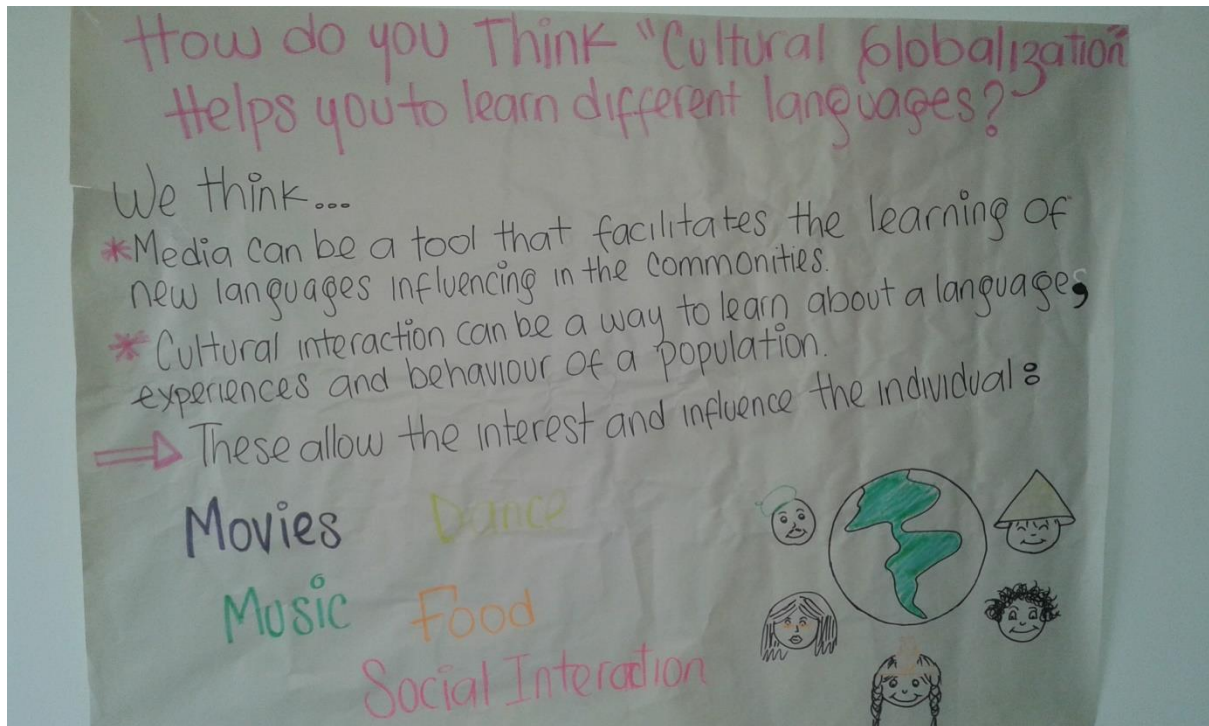 How do you Think "Cultural Globalization
Helps you to learn different languages?
We think...
*Media can be a tool that facilitates the learning of
new languages influencing in the commonities.
* Cultural interaction can be a way to learn about a language,
experiences and behaviour of a population.
⇒ These allow the interest and influence the individual:
Movies Dance
Music Food
Social Interaction